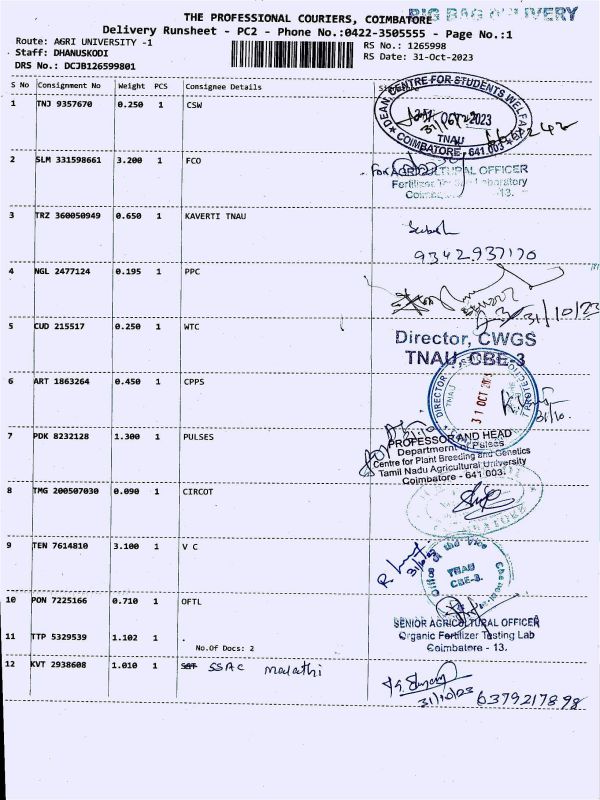 BIG BAG DELIVERY
THE PROFESSIONAL COURIERS, COIMBATORE
Delivery Runsheet - PC2 - Phone No.:0422-3505555 - Page No.:1
Route: AGRI UNIVERSITY -1
RS No.: 1265998
Staff: DHANUSKODI
RS Date: 31-Oct-2023
DRS No.: DCJB126599801
S No Consignment No Weight PCS Consignee Details
1 TNJ 9357670 0.250 1 CSW
DEAN, CENTRE FOR STUDENTS WELFA
OCT 2023
TNAU
COIMBATORE - 641 003
2 SLM 331598661 3.200 1 FCO
For AGRICULTURAL OFFICER
Fertilizer Laboratory
-13.
3 TRZ 360050949 0.650 1 KAVERTI TNAU
9342937170
4 NGL 2477124 0.195 1 PPC
31/10/23
5 CUD 215517 0.250 1 WTC
Director, CWGS
TNAU, CBE-3
6 ART 1863264 0.450 1 CPPS
DIRECTOR
TNAU
31 OCT
31/10.
7 PDK 8232128 1.300 1 PULSES
PROFESSOR AND HEAD
Department of Pulses
Centre for Plant Breeding and Genetics
Tamil Nadu Agricultural University
Coimbatore - 641 003.
8 TMG 200507030 0.090 1 CIRCOT
9 TEN 7614810 3.100 1 V C
Office of the Vice
TNAU
CBE-3.
10 PON 7225166 0.710 1 OFTL
SENIOR AGRICULTURAL OFFICER
Organic Fertilizer Testing Lab
Coimbatore - 13.
11 TTP 5329539 1.102 1 .
No.Of Docs: 2
12 KVT 2938608 1.010 1 SSAC malathi
31/10/23 6379217898